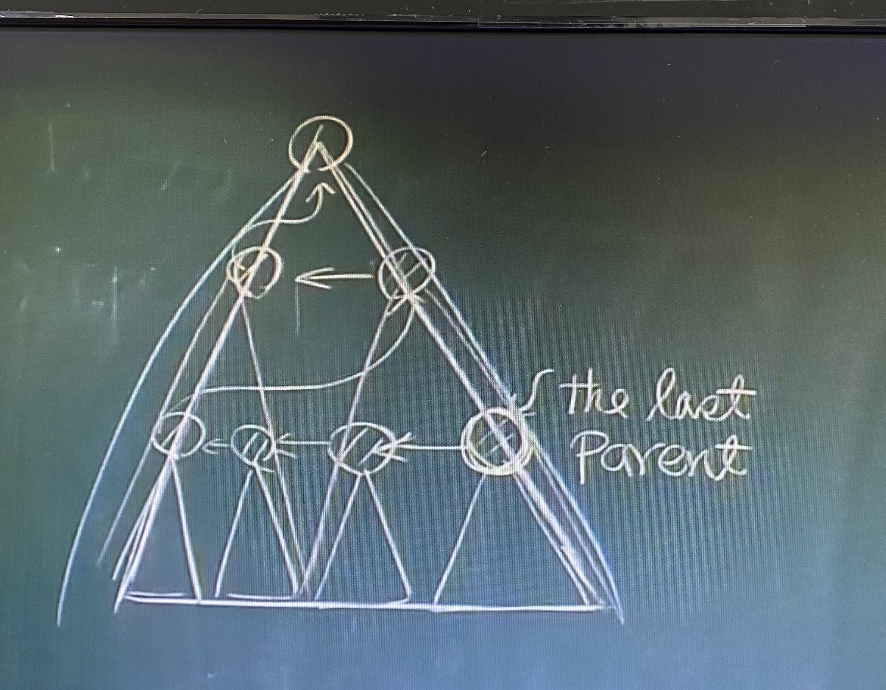 the last
Parent